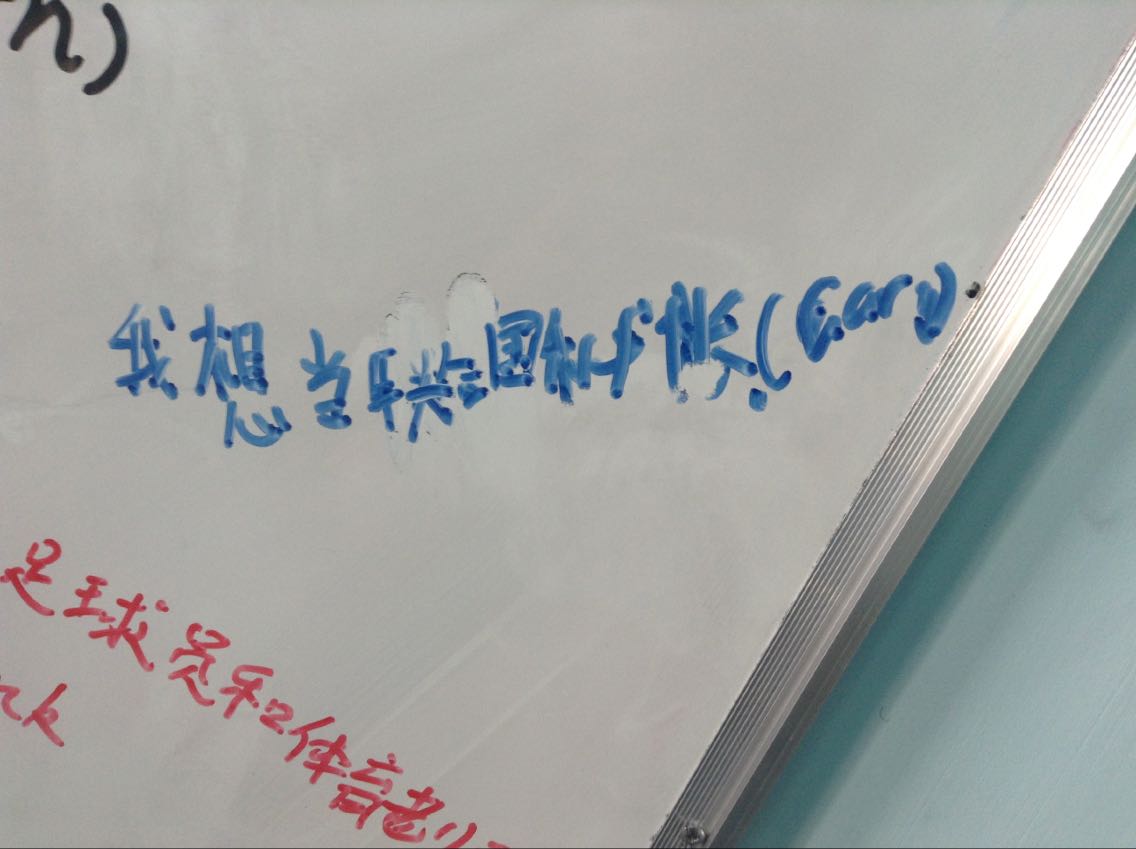 n)
我想当联合国秘书长(Gary)
足球员和体育老
nk